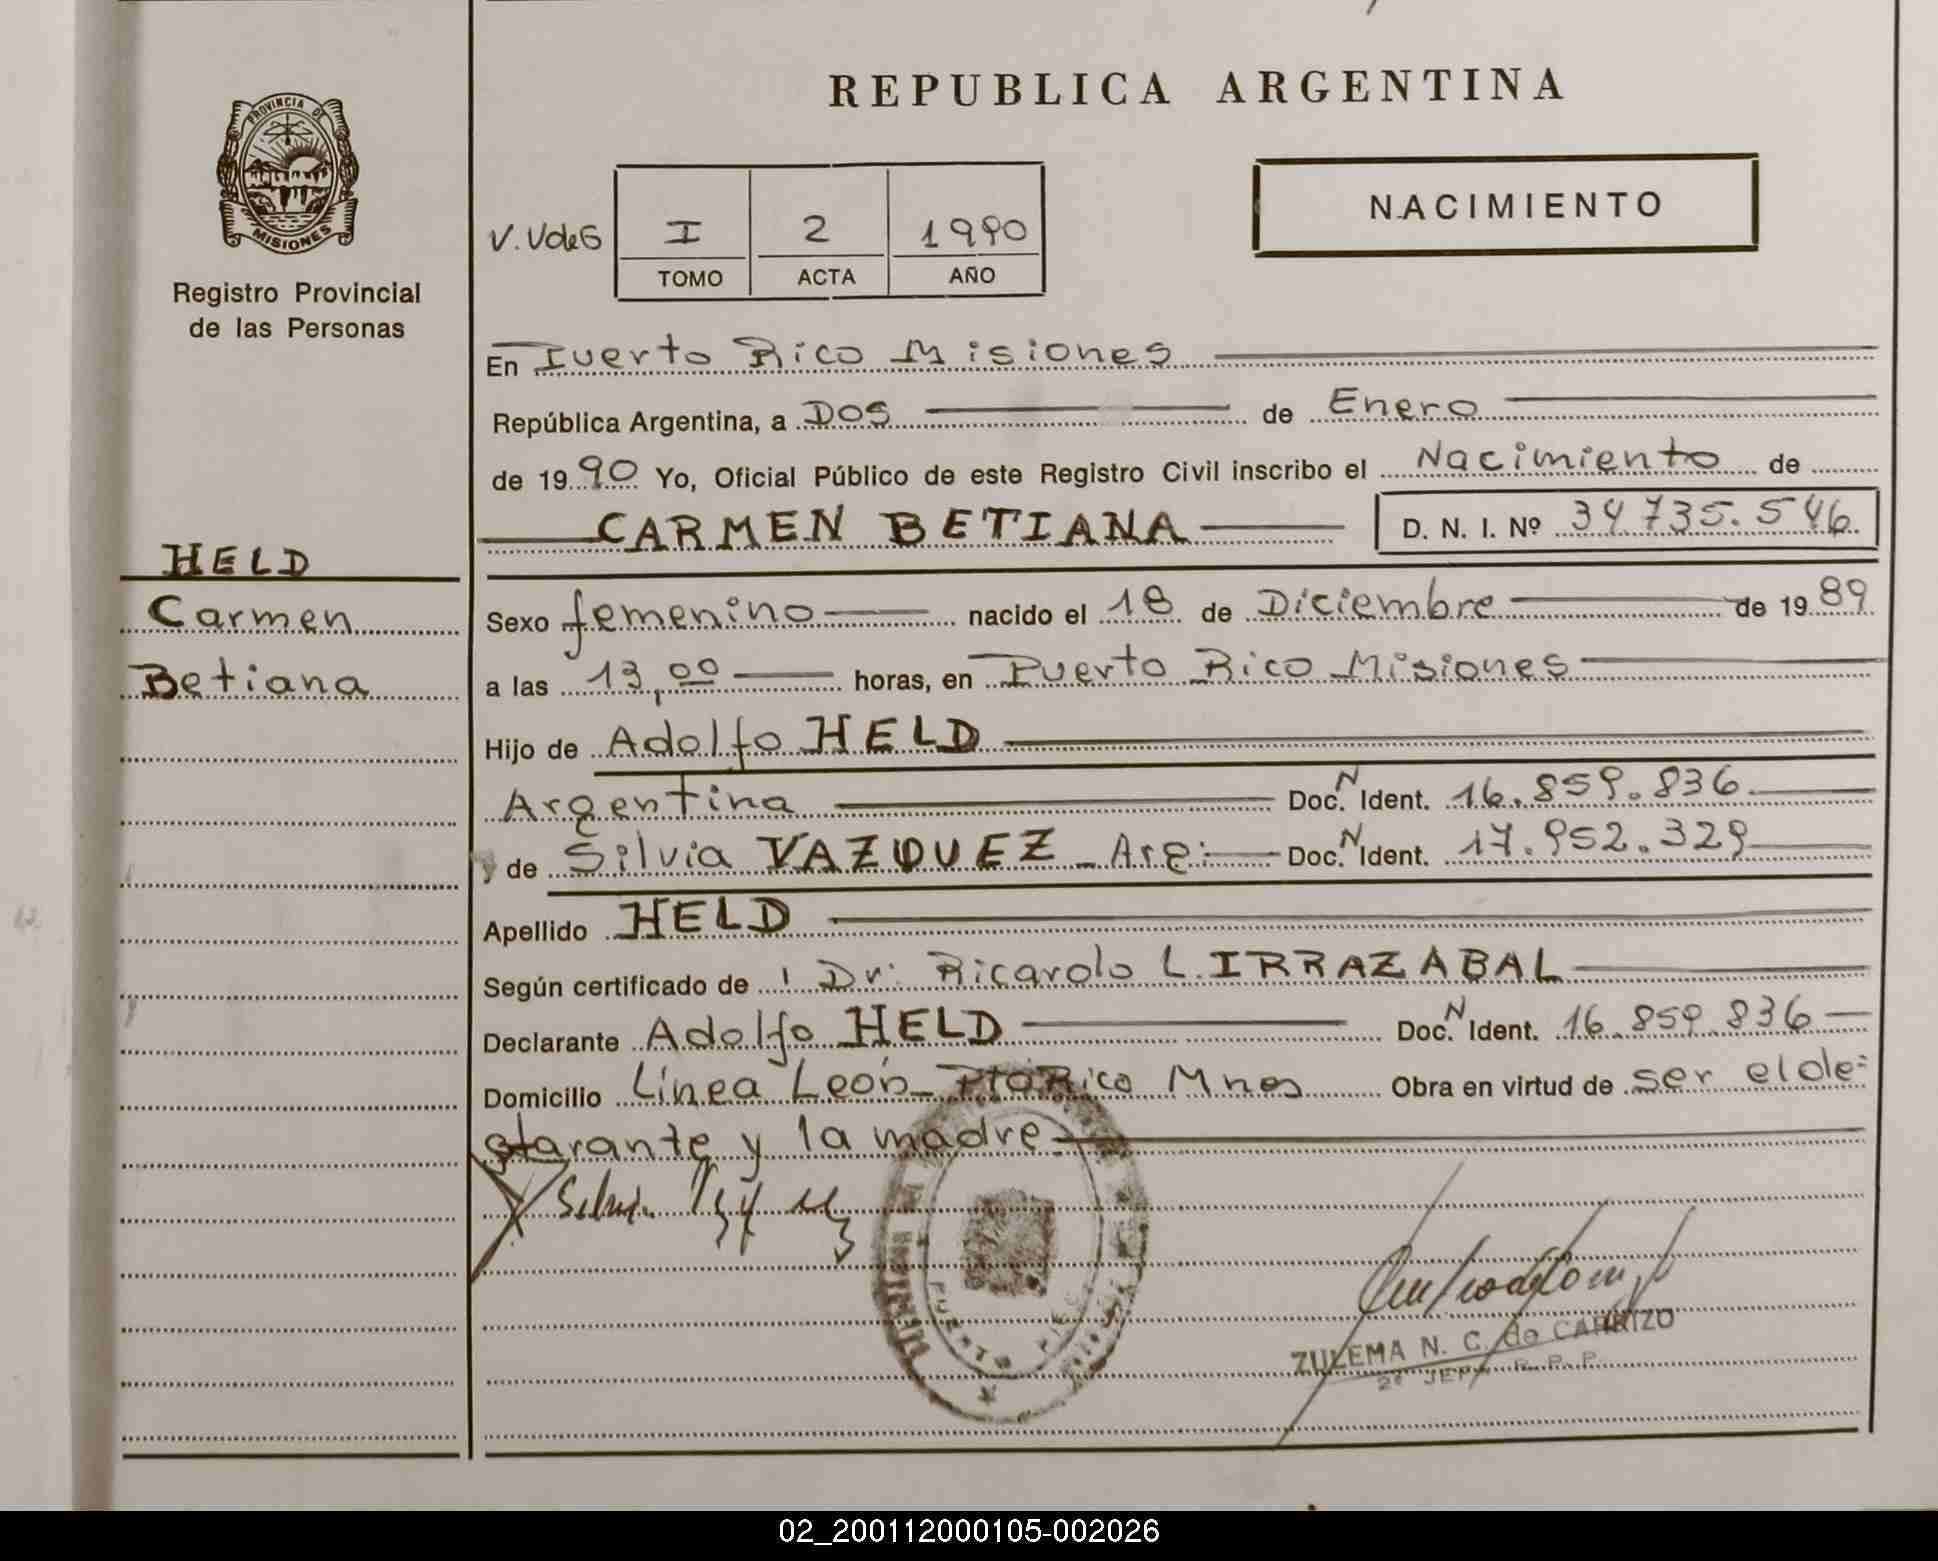 REPUBLICA ARGENTINA
PROVINCIA DE
MISIONES
Registro Provincial
de las Personas
V.VdeG I 2 1990
TOMO ACTA AÑO
NACIMIENTO
En Puerto Rico Misiones
República Argentina, a DOS de Enero
de 1990 Yo, Oficial Público de este Registro Civil inscribo el Nacimiento de
CARMEN BETIANA D. N. I. Nº 34735.546
HELD
Carmen
Betiana
Sexo femenino nacido el 18 de Diciembre de 1989
a las 13,00 horas, en Puerto Rico Misiones
Hijo de Adolfo HELD
Argentina Doc. N Ident. 16.859.836
y de Silvia VAZQUEZ - Arg: Doc. N Ident. 17.952.329
Apellido HELD
Según certificado de Dr. Ricardo L. IRRAZABAL
Declarante Adolfo HELD Doc. N Ident. 16.859.836
Domicilio Línea León - Pto Rico Mnes Obra en virtud de ser el de-
clarante y la madre.
ZULEMA N. C. de CARRIZO
2º JEFE R. P. P.
02_200112000105-002026